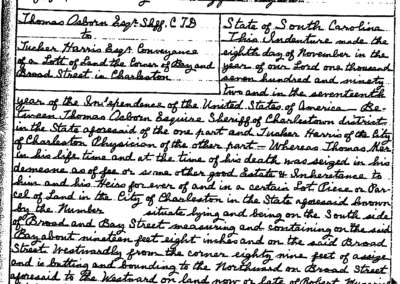 Thomas Osborn Esqr. Shff. C T D
to
Tucker Harris Esqr. Conveyance
of a Lott of Land the Corner of Bay and
Broad Street in Charleston
State of South Carolina
This Indenture made the
eighth day of November in the
year of our Lord one thousand
seven hundred and ninety
two and in the seventeenth
year of the Independence of the United States of America — Be-
tween Thomas Osborn Esquire Sheriff of Charlestown district
in the State aforesaid of the one part and Tucker Harris of the City
of Charleston Physician of the other part — Whereas Thomas
in his life time and at the time of his death was seized in his
demesne as of fee or some other good Estate & Inheretance to
him and his Heirs for ever of and in a certain Lot Piece or Par-
cel of Land in the City of Charleston in the State aforesaid known
by the Number situate lying and being on the South side
of Broad and Bay Street measuring and containing on the said
Bay about nineteen feet eight inches and on the said Broad
Street Westwardly from the corner eighty nine feet of assize
and is butting and bounding to the Northward on Broad Street
aforesaid to the Westward on land now or late of Robert